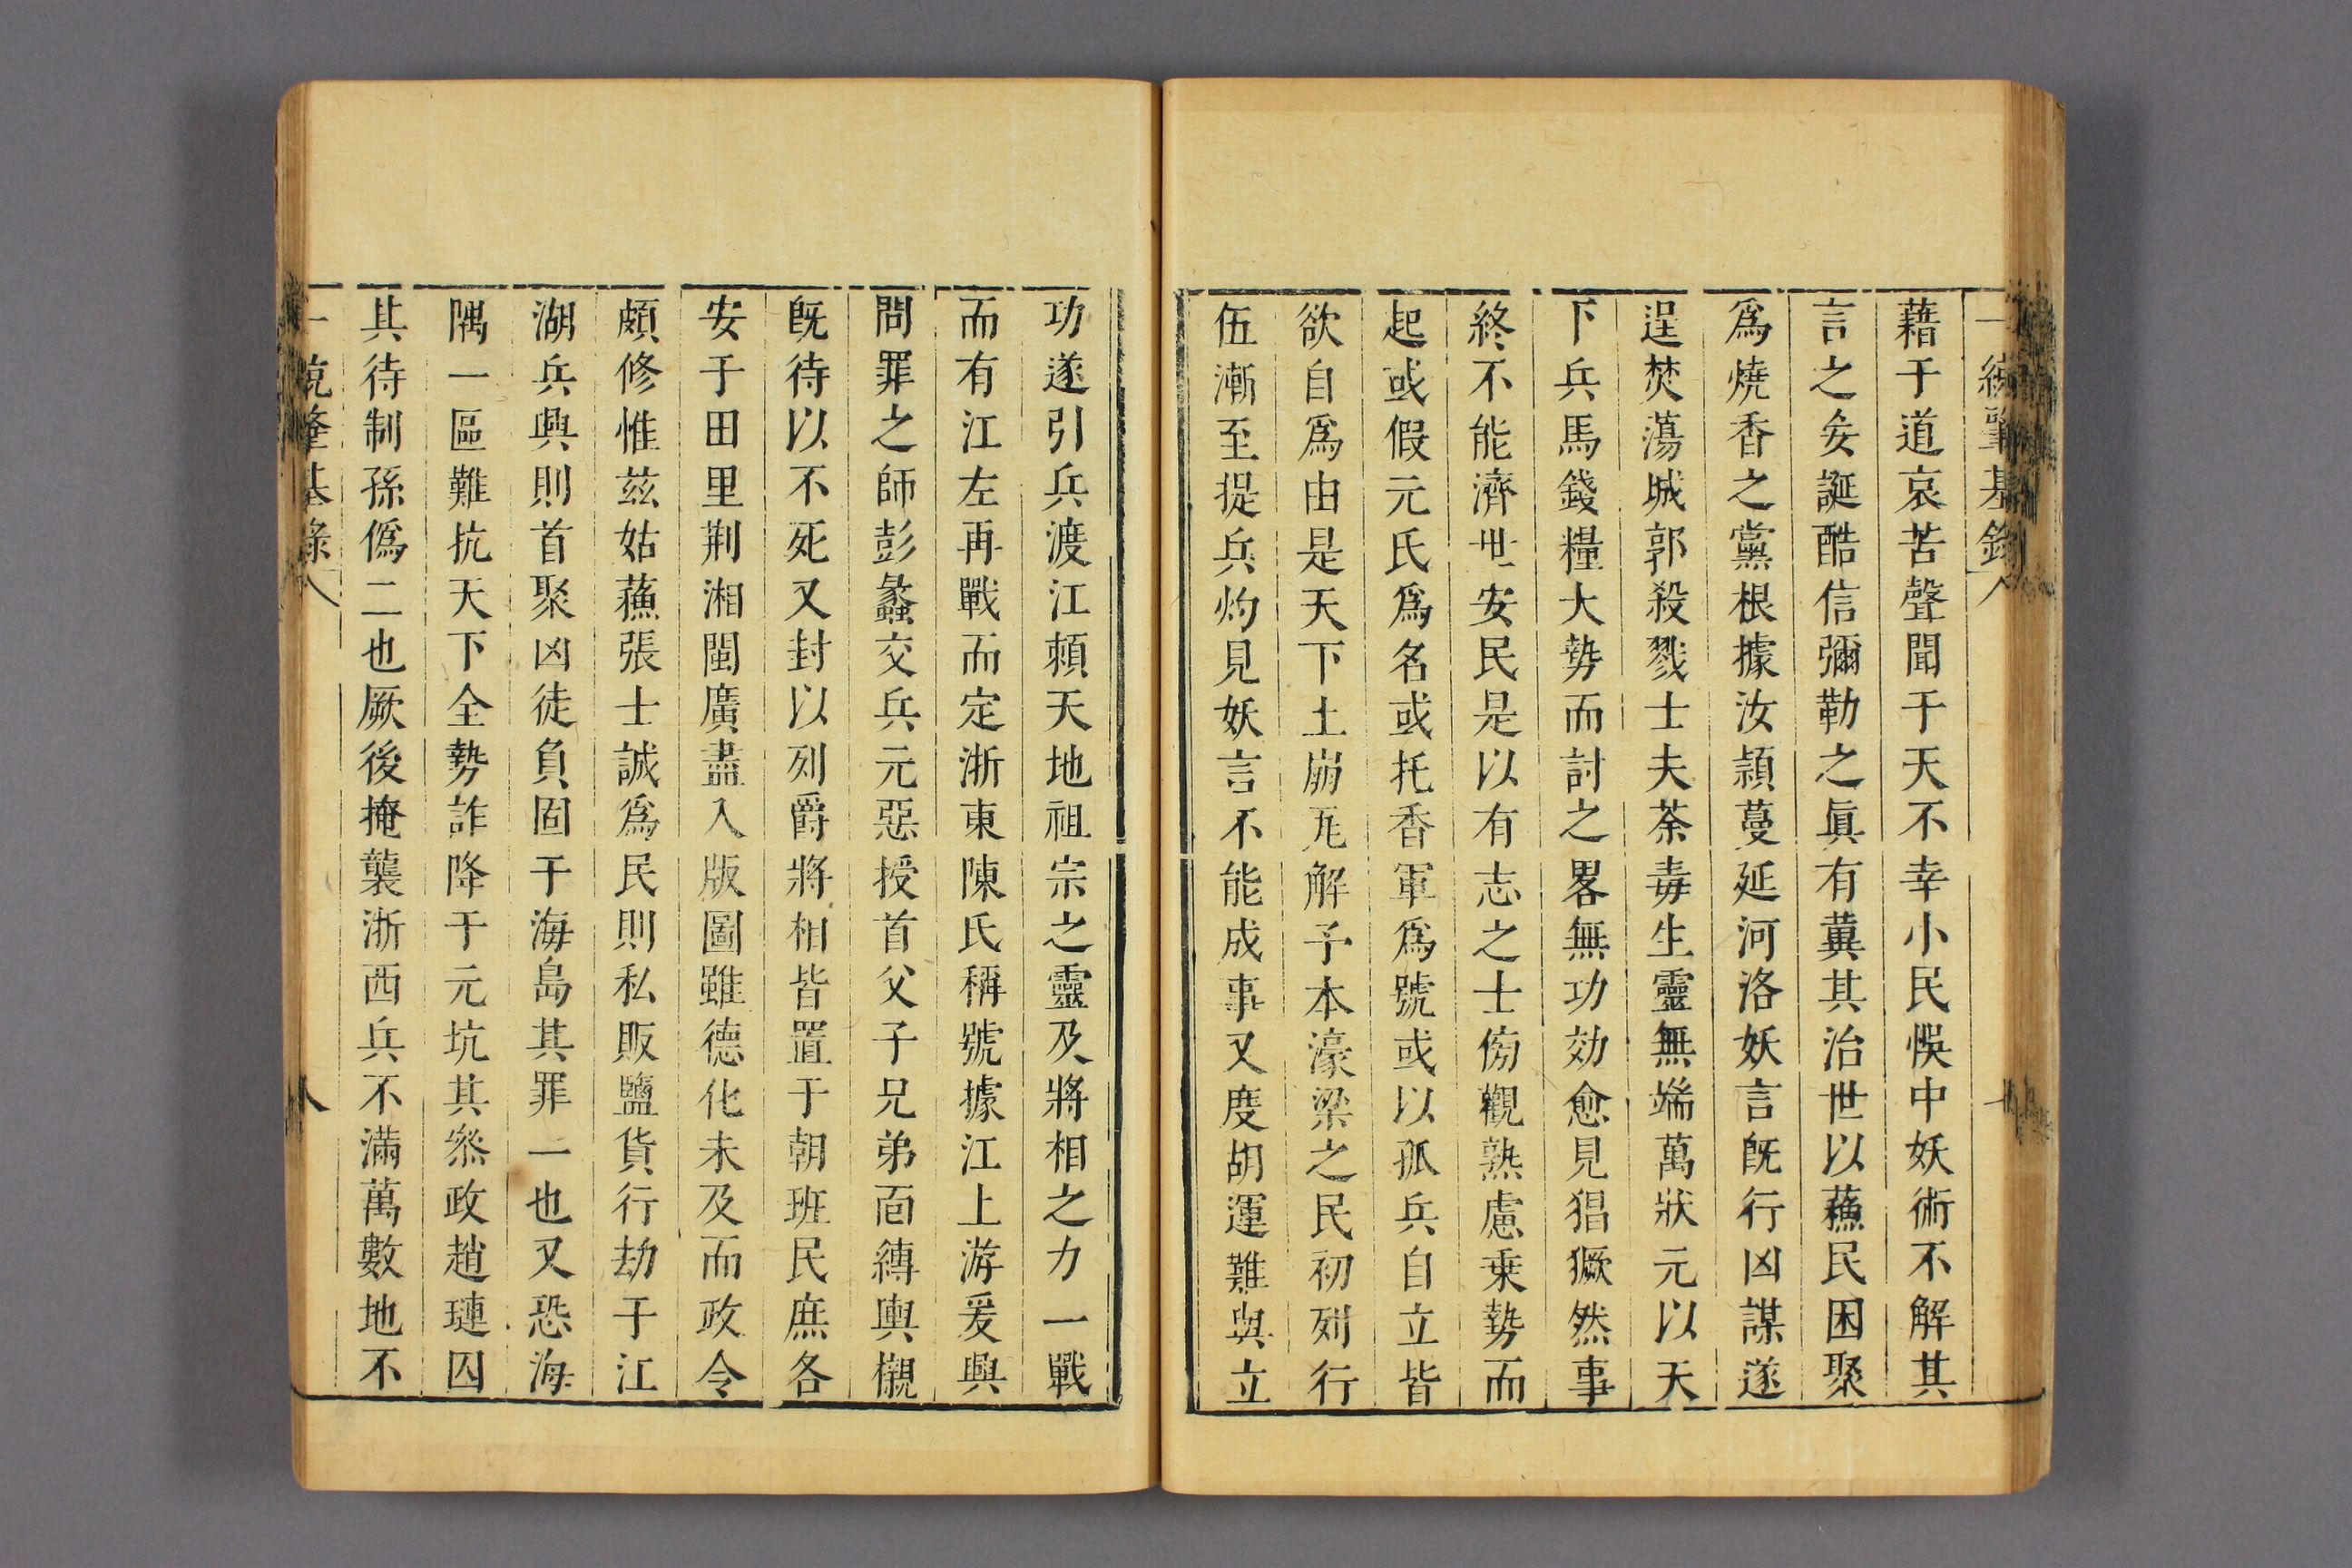 藉于道哀苦聲聞于天天不幸小民悞中妖術不解其
言之妄誕酷信彌勒之眞有冀其治世以蘓民困聚
爲燒香之黨根據汝頴蔓延河洛妖言旣行凶謀遂
逞焚蕩城郭殺戮士夫荼毒生靈無端萬狀元以天
下兵馬錢糧大勢而討之畧無功効愈見猖獗然事
終不能濟世安民是以有志之士傍觀熟慮乗勢而
起或假元氏爲名或托香軍爲號或以孤兵自立皆
欲自爲由是天下土崩瓦解予本濠梁之民初列行
伍漸至提兵灼見妖言不能成事又度胡運難與立
功遂引兵渡江頼天地祖宗之靈及將相之力一戰
而有江左再戰而定浙東陳氏稱號據江上游爰興
問罪之師彭蠡交兵元惡授首父子兄弟靣縛輿櫬
旣待以不死又封以列爵將相皆置于朝班民庶各
安于田里荆湘閩廣盡入版圖雖德化未及而政令
頗修惟兹姑蘓張士誠爲民則私販鹽貨行劫于江
湖兵興則首聚凶徒負固于海島其罪一也又恐海
隅一區難抗天下全勢詐降于元坑其叅政趙璉囚
其待制孫僞二也厥後掩襲浙西兵不滿萬數地不